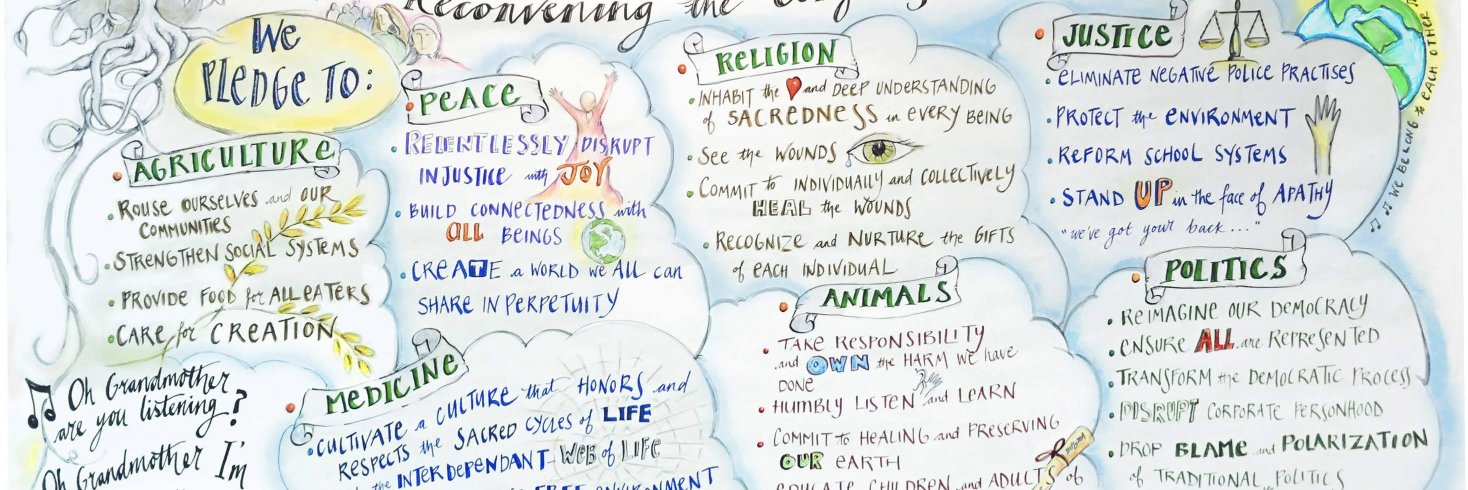 Reconvening the
We
PLEDGE TO:
AGRICULTURE
• ROUSE OURSELVES and OUR
COMMUNITIES
• STRENGTHEN SOCIAL SYSTEMS
• PROVIDE FOOD for ALL EATERS
• CARE for CREATION
PEACE
• RELENTLESSLY DISRUPT
INJUSTICE with JOY
• BUILD CONNECTEDNESS with
ALL BEINGS
• CREATE a WORLD WE ALL can
SHARE IN PERPETUITY
RELIGION
• INHABIT the and DEEP UNDERSTANDING
of SACREDNESS in EVERY BEING
• SEE the WOUNDS
• COMMIT to INDIVIDUALLY and COLLECTIVELY
HEAL the WOUNDS
• RECOGNIZE and NURTURE the GIFTS
of EACH INDIVIDUAL
JUSTICE
• ELIMINATE NEGATIVE POLICE PRACTISES
• PROTECT the ENVIRONMENT
• REFORM SCHOOL SYSTEMS
• STAND UP in the face of APATHY
"we've got your back..."
WE BELONG to EACH OTHER
Oh Grandmother
are you listening?
Oh Grandmother I'm
MEDICINE
• CULTIVATE a CULTURE that HONORS and
RESPECTS the SACRED CYCLES of LIFE
the INTERDEPENDANT WEB of LIFE
FREE ENVIRONMENT
ANIMALS
• TAKE RESPONSIBILITY
and OWN the HARM WE have
DONE
• HUMBLY LISTEN and LEARN
• COMMIT to HEALING and PRESERVING
OUR EARTH
EDUCATE CHILDREN and ADULTS of
POLITICS
• REIMAGINE OUR DEMOCRACY
• ENSURE ALL are REPRESENTED
• TRANSFORM the DEMOCRATIC PROCESS
• DISRUPT CORPORATE PERSONHOOD
• DROP BLAME and POLARIZATION
of TRADITIONAL POLITICS